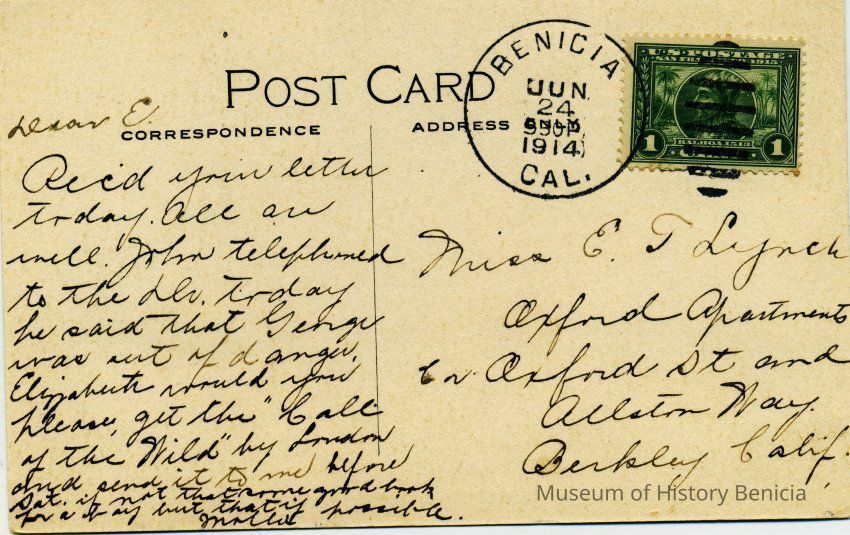 POST CARD
CORRESPONDENCE
ADDRESS
BENICIA
JUN
24
1914
CAL.
U.S. POSTAGE
SAN FRANCISCO 1915
BALBOA 1513
1 1
Dear E.
Rec'd your letter
today. All are
well. John telephoned
to the Dr. today
he said that George
was out of danger.
Elizabeth would you
please, get the "Call
of the Wild" by London
and send it to me before
Sat. if not that some good book
for a boy but that if possible.
Mollie
Miss E. T Lynch
Oxford Apartments
Oxford St and
Allston Way.
Berkley Calif.
Museum of History Benicia